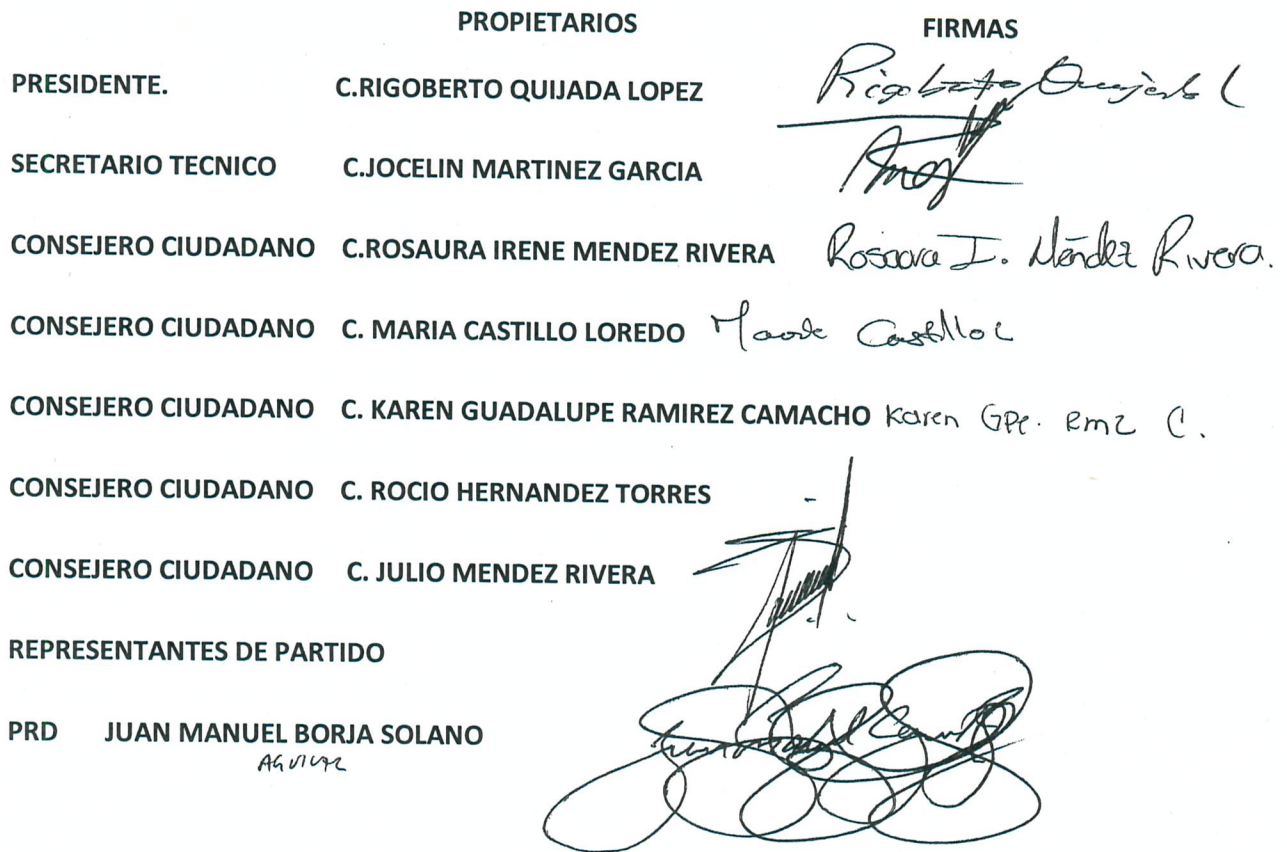 PROPIETARIOS FIRMAS
PRESIDENTE. C.RIGOBERTO QUIJADA LOPEZ Rigoberto Quijada L
SECRETARIO TECNICO C.JOCELIN MARTINEZ GARCIA
CONSEJERO CIUDADANO C.ROSAURA IRENE MENDEZ RIVERA Rosaura I. Méndez Rivera.
CONSEJERO CIUDADANO C. MARIA CASTILLO LOREDO Castillo L
CONSEJERO CIUDADANO C. KAREN GUADALUPE RAMIREZ CAMACHO Karen Gpe. Rmz C.
CONSEJERO CIUDADANO C. ROCIO HERNANDEZ TORRES
CONSEJERO CIUDADANO C. JULIO MENDEZ RIVERA
REPRESENTANTES DE PARTIDO
PRD JUAN MANUEL BORJA SOLANO